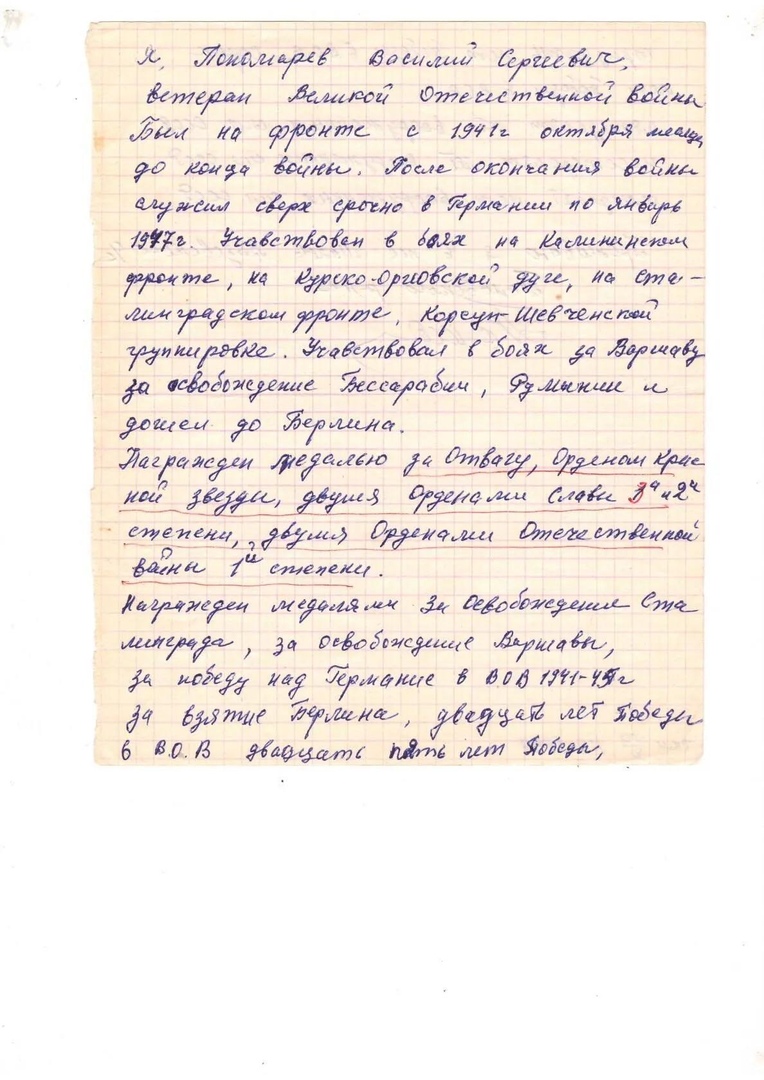 Я, Пономарев Василий Сергеевич,
ветеран Великой Отечественной войны
Был на фронте с 1941г октября месяца
до конца войны. После окончания войны
служил сверх срочно в Германии по январь
1947г. Учавствовал в боях на Калининском
фронте, на Курско-Орловской дуге, на Ста-
линградском фронте, Корсун-Шевченской
группировке. Учавствовал в боях за Варшаву
за освобождение Бессарабии, Румынии и
дошел до Берлина.
Награжден медалью за Отвагу, Орденом Крас
ной звезды, двумя Орденами Славы 3й и 2й
степени, двумя Орденами Отечественной
войны 1й степени.
Награжден медалями За Освобождение Ста
линграда, за освобождение Варшавы,
за победу над Германие в ВОВ 1941-45г
за взятие Берлина, двадцать лет Победы
в В.О.В двадцать пять лет Победы,